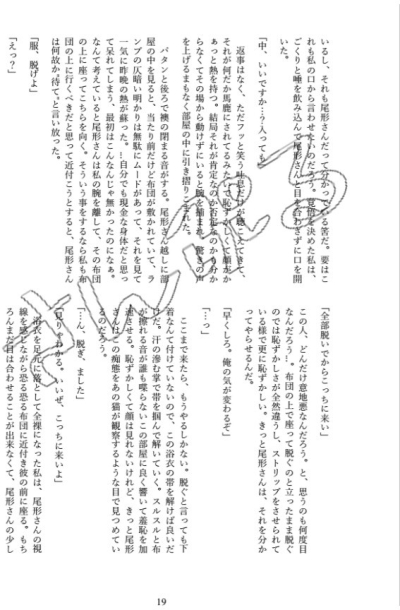 いるし、それも尾形さんだって分かっている筈だ。要はこ
れも私の口から言わせたいのだろう。覚悟を決めた私は、
ごくりと唾を飲み込んで尾形さんと目を合わさずに口を開
いた。
「中、いいですか…？入っても」
返事はなく、ただフッと笑う吐息だけが聴こえてきて、
それが何だか馬鹿にされてるみたいで恥ずかしくて顔がか
ぁっと熱を持つ。結局それが肯定なのか否定なのかも分か
らなくてその場から動けずにいると腕を捕まれ、驚きの声
を上げるまもなく部屋の中に引き摺りこまれた。
パタンと後ろで襖の閉まる音がする。尾形さん越しに部
屋の中を見ると、当たり前だけど布団が敷かれていて、ラ
ンプの仄暗い明かりは無駄にムードがあって、それを見て
一気に昨晩の熱が蘇った。自分でも現金な身体だと思っ
て呆れてしまう、最初はこんなんじゃ無かったのになぁ。
なんて考えていると尾形さんは私の腕を離して、その布団
の上に座ってこちらを向く。そういう事をするなら私も布
団の上に行くべきだと思って近付こうとすると、尾形さん
は何故か「待て。」と言い放った。
「服、脱げよ」
「えっ？」
「全部脱いでからこっちに来い」
この人、どんだけ意地悪なんだろう。と、思うのも何度目
なんだろう！。布団の上で座って脱ぐのと立ったまま脱ぐ
のでは恥ずかしさが全然違うし、ストリップをさせられて
いる様で更に恥ずかしい。きっと尾形さんは、それを分か
ってやらせるんだ。
「早くしろ。俺の気が変わるぞ」
「…っ」
ここまで来たら、もうやるしかない。脱ぐと言っても下
着なんて付けていないので、この浴衣の帯を解けば良いだ
けだ。汗の滲む掌で帯を掴んで解いていく。スルスルと布
が擦れる音が誰も喋らないこの部屋に良く響いて羞恥を加
速させる。恥ずかしくて顔は見れないけれど、きっと尾形
さんはこの痴態をあの猫が観察するような目で見つめてい
るのだろう。
「…ん、脱ぎ、ました」
「見りゃわかる。いいぜ、こっちに来いよ」
浴衣を足元に落として全裸になった私は、尾形さんの視
線を感じながら恐る恐る布団に近付き彼の前に座る。もち
ろんまだ目は合わせることが出来なくて、尾形さんの少し
19